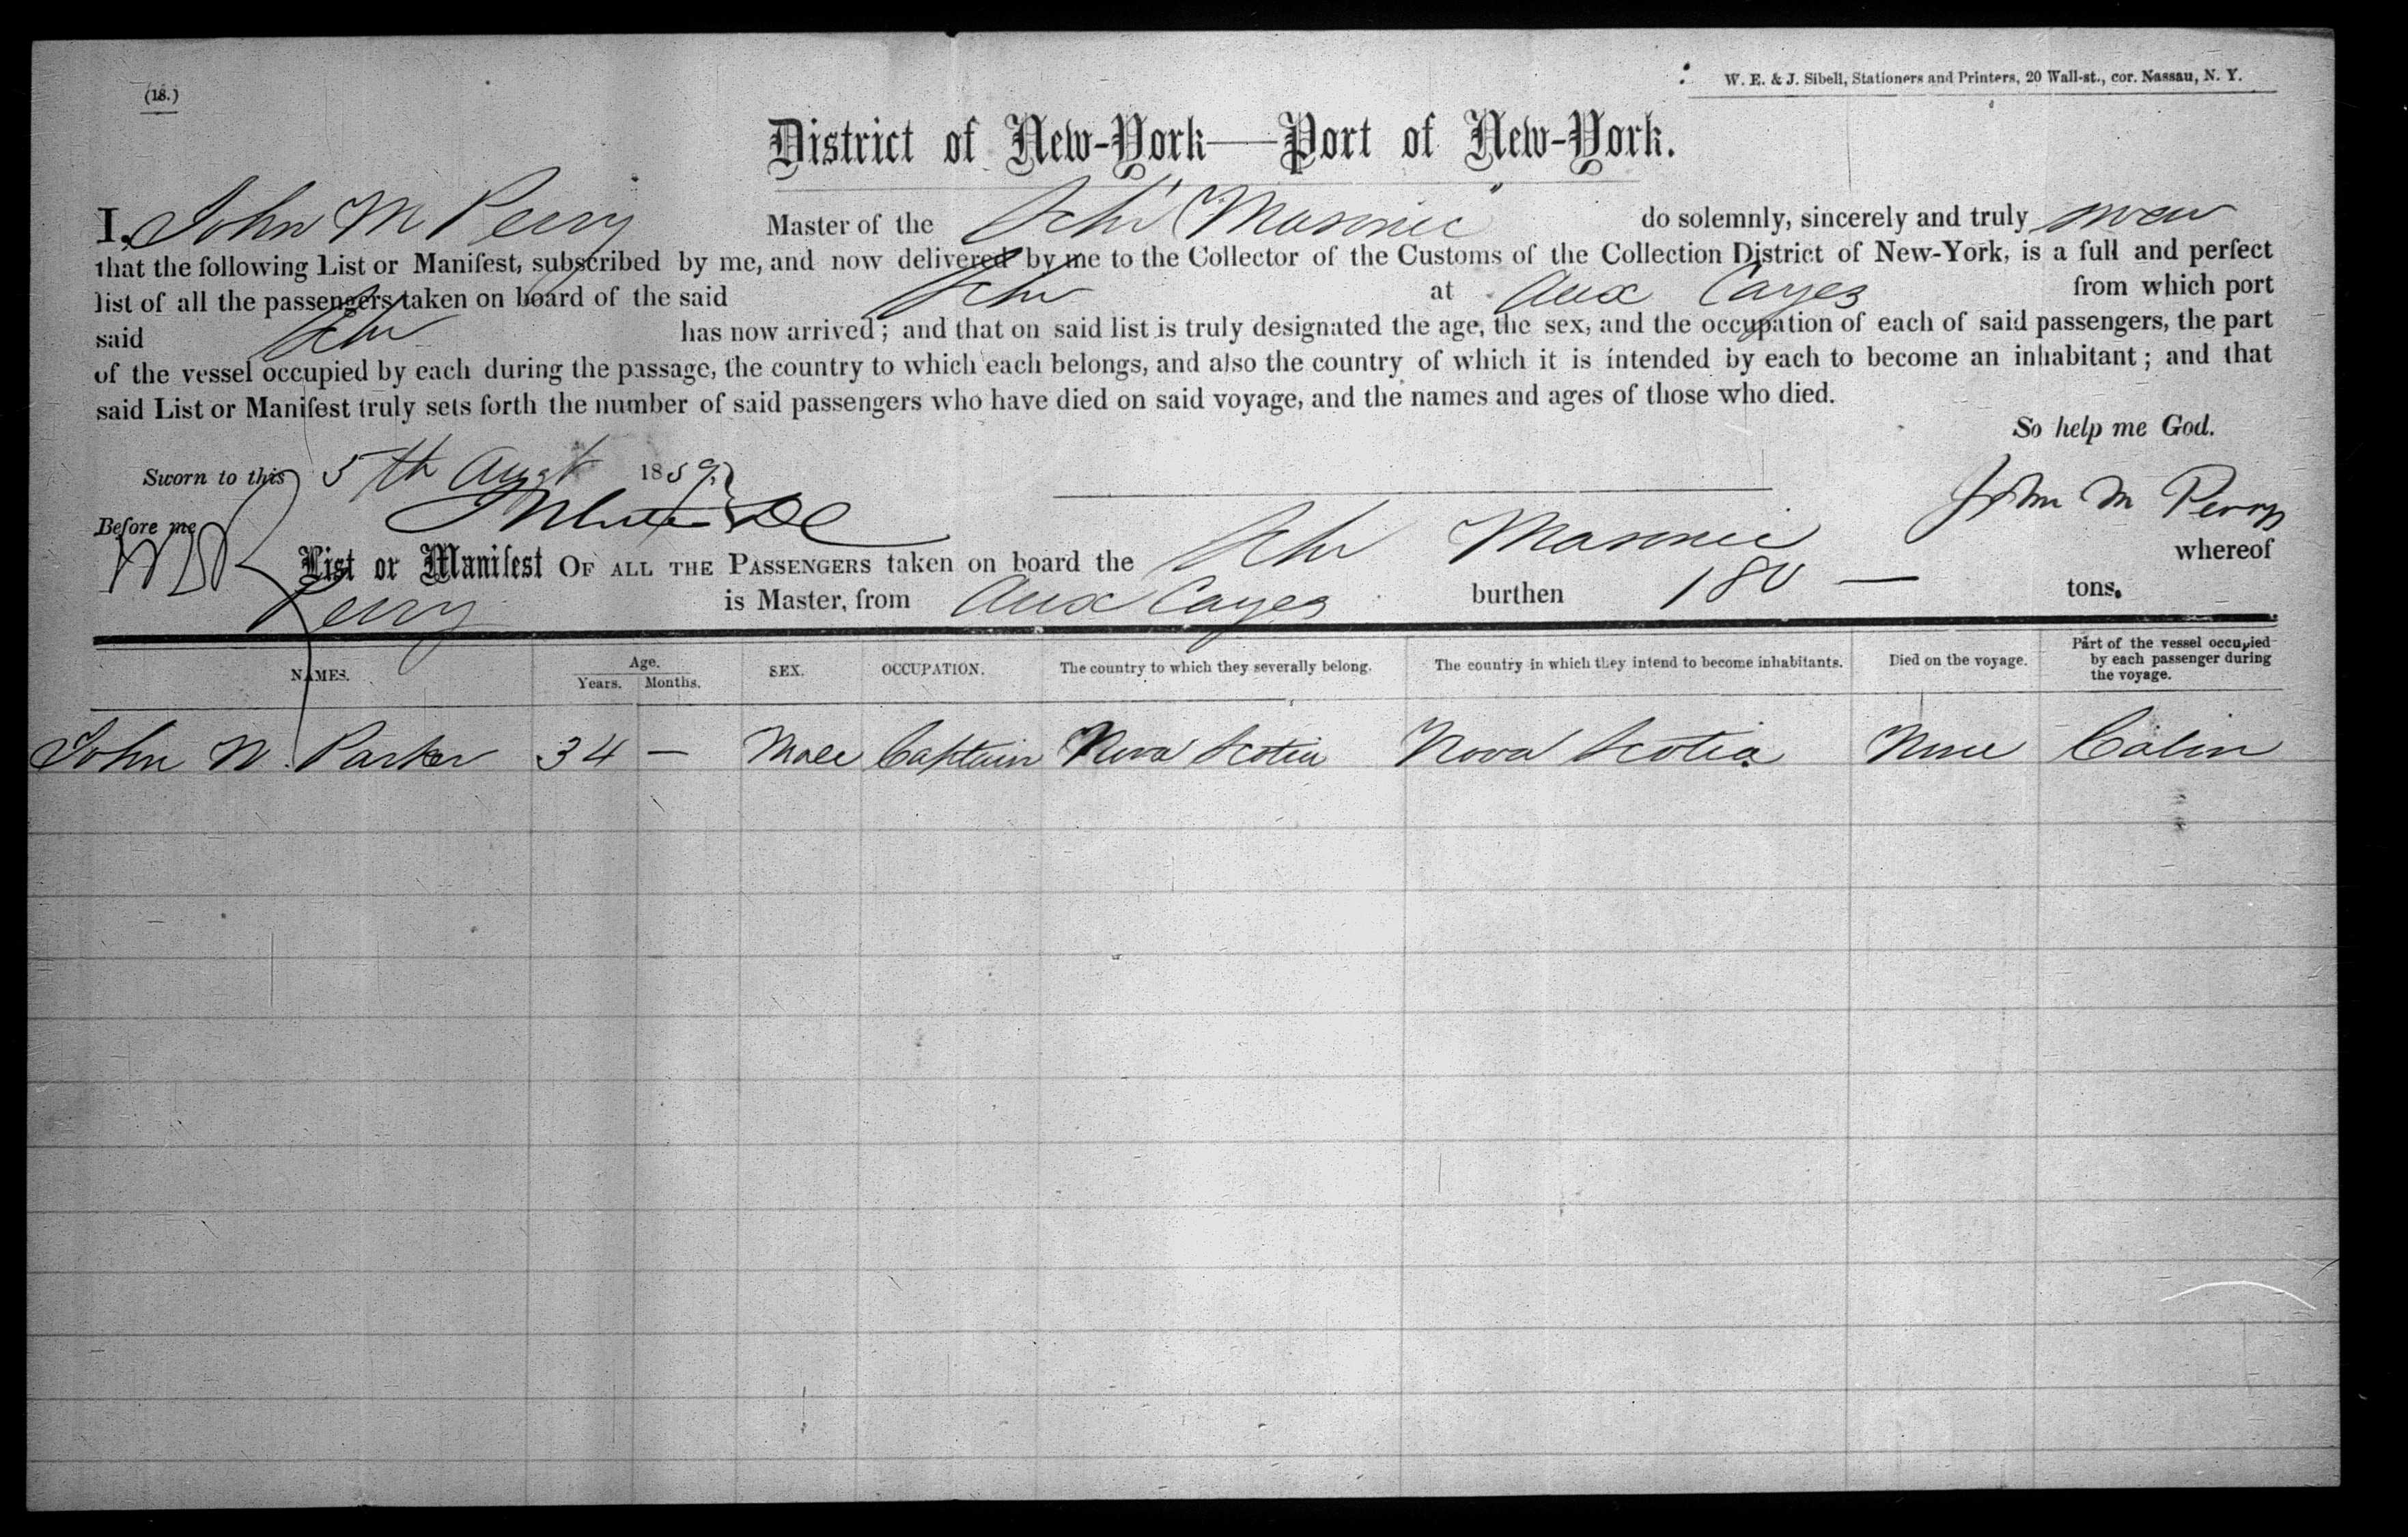 (18.)
W. E. & J. Sibell, Stationers and Printers, 20 Wall-st., cor. Nassau, N. Y.
District of New-York—Port of New-York.
I, John M Perry Master of the Schr Masonic do solemnly, sincerely and truly swear
that the following List or Manifest, subscribed by me, and now delivered by me to the Collector of the Customs of the Collection District of New-York, is a full and perfect
list of all the passengers taken on board of the said Schr at Aux Cayes from which port
said Schr has now arrived; and that on said list is truly designated the age, the sex, and the occupation of each of said passengers, the part
of the vessel occupied by each during the passage, the country to which each belongs, and also the country of which it is intended by each to become an inhabitant; and that
said List or Manifest truly sets forth the number of said passengers who have died on said voyage, and the names and ages of those who died.
So help me God.
Sworn to this 5th Augt 1859
John M Perry
Before me
List or Manifest OF ALL THE PASSENGERS taken on board the Schr Masonic whereof
Perry is Master, from Aux Cayes burthen 180 — tons.
NAMES. Age. Years. Months. SEX. OCCUPATION. The country to which they severally belong. The country in which they intend to become inhabitants. Died on the voyage. Part of the vessel occupied by each passenger during the voyage.
John N. Parker 34 — Male Captain Nova Scotia Nova Scotia None Cabin